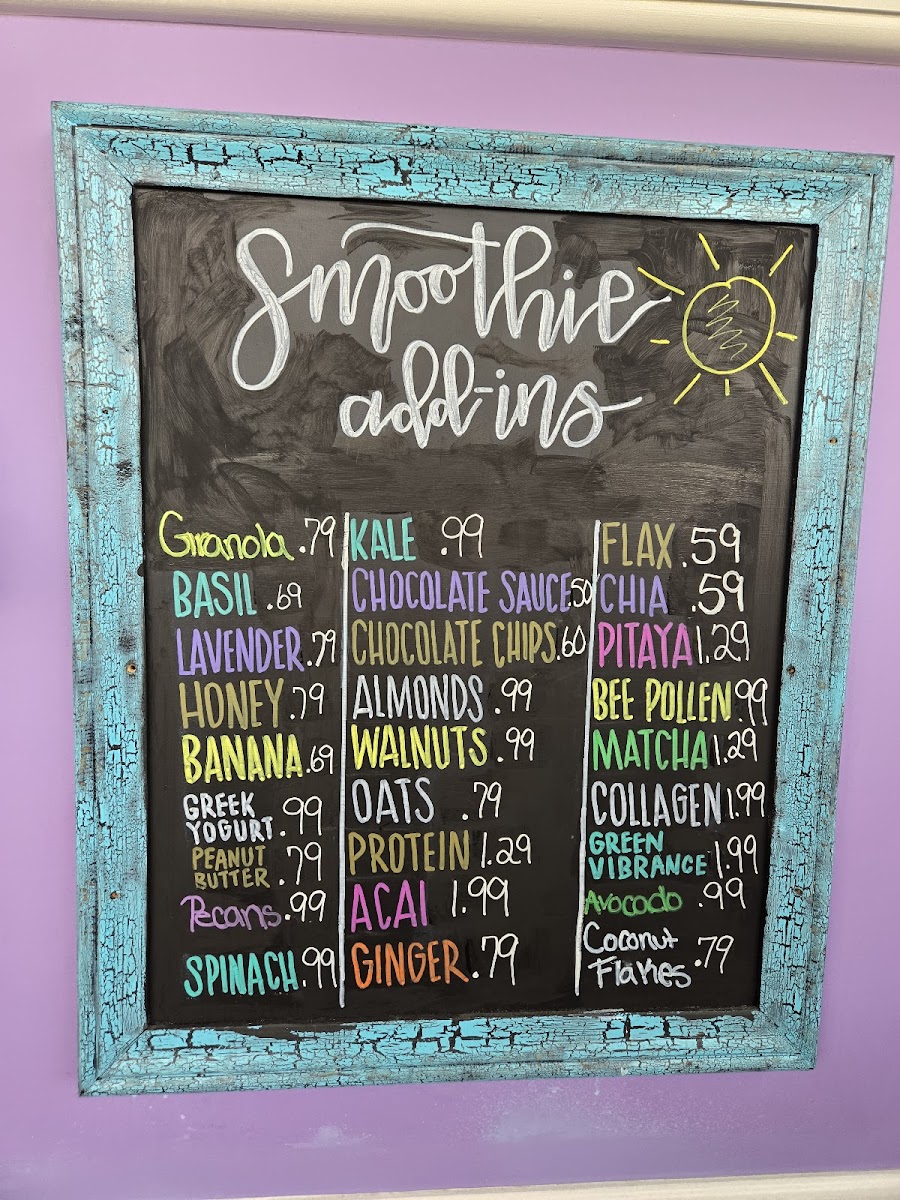 Smoothie
add-ins
Granola .79
BASIL .69
LAVENDER .79
HONEY .79
BANANA .69
GREEK
YOGURT .99
PEANUT
BUTTER .79
Pecans .99
SPINACH .99
KALE .99
CHOCOLATE SAUCE .50
CHOCOLATE CHIPS .60
ALMONDS .99
WALNUTS .99
OATS .79
PROTEIN 1.29
ACAI 1.99
GINGER .79
FLAX .59
CHIA .59
PITAYA 1.29
BEE POLLEN .99
MATCHA 1.29
COLLAGEN 1.99
GREEN
VIBRANCE 1.99
Avocado .99
Coconut
Flakes .79